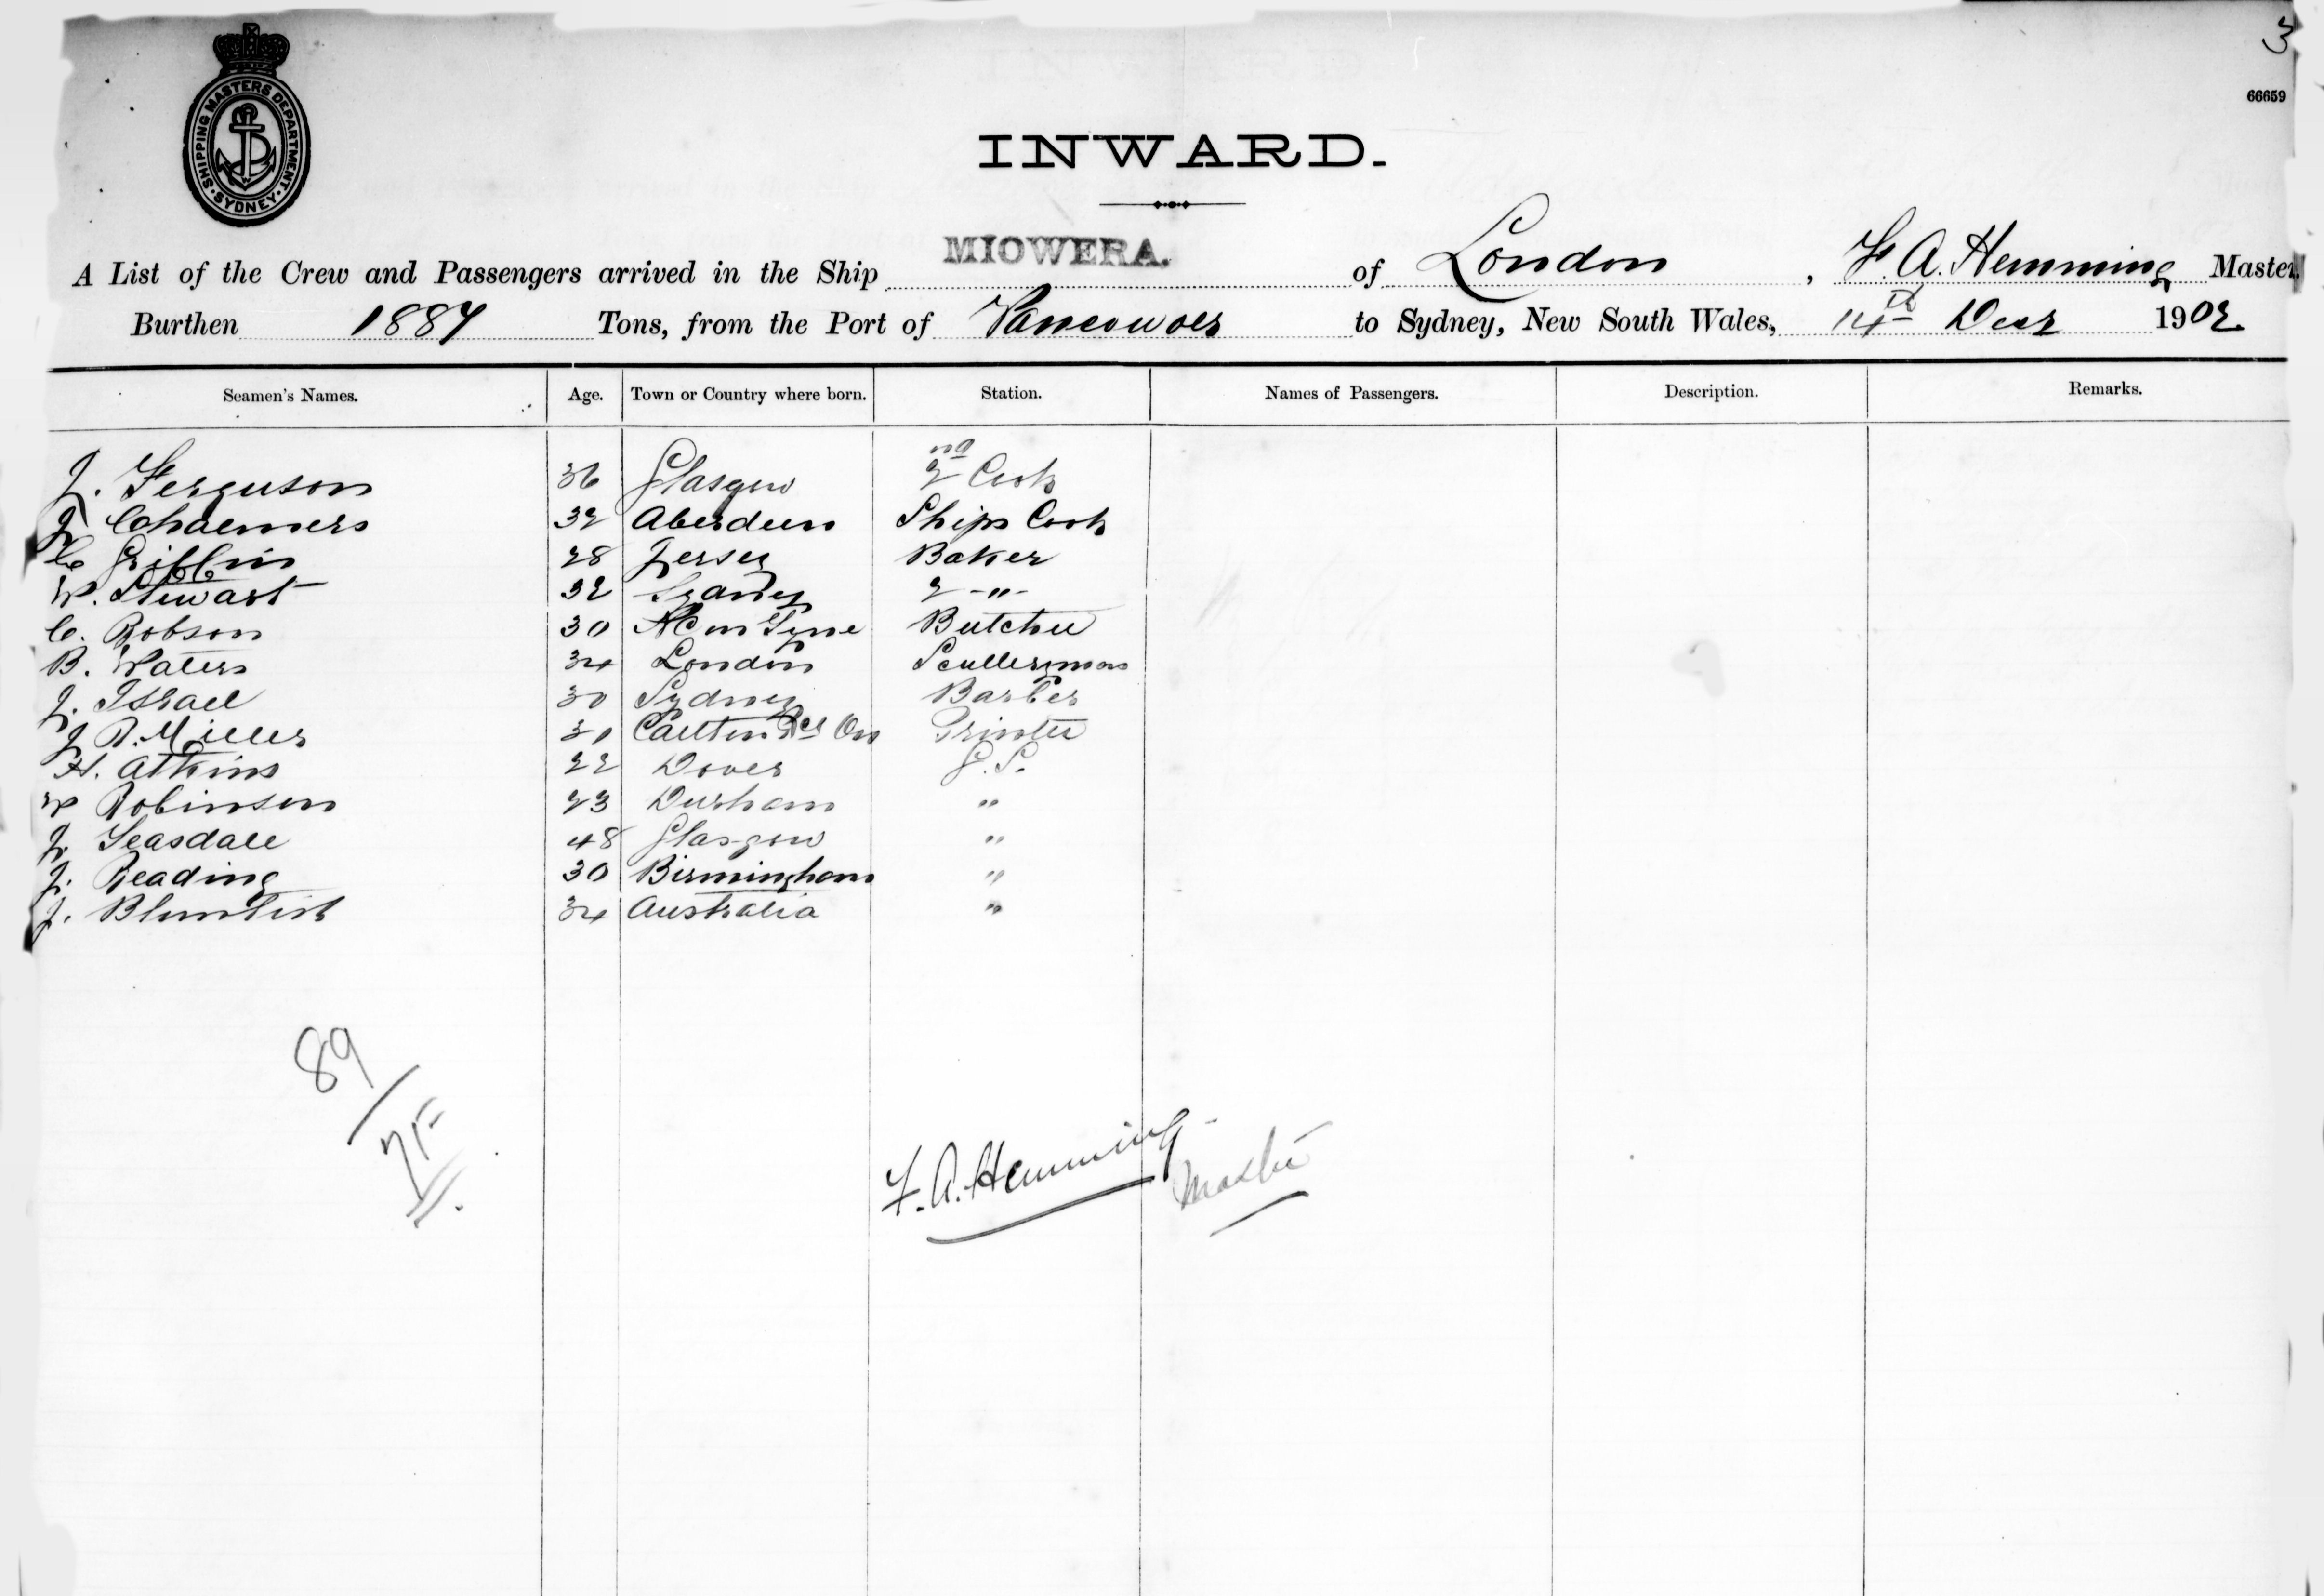 3
66659
SHIPPING MASTERS DEPARTMENT · SYDNEY ·
INWARD.
A List of the Crew and Passengers arrived in the Ship MIOWERA. of London, F. A. Hemming Master,
Burthen 1887 Tons, from the Port of Vancouver to Sydney, New South Wales, 14th Decr 1902.
Seamen's Names. Age. Town or Country where born. Station. Names of Passengers. Description. Remarks.
J. Ferguson 36 Glasgow 2nd Cook
J Chalmers 32 Aberdeen Ships Cook
C Griffin 28 Jersey Baker
W. Stewart 32 Sydney 2 - " -
C. Robson 30 NC on Tyne Butcher
B. Waters 34 London Sculleryman
J. Israel 30 Sydney Barber
J R. Miller 31 Carlton Printer
H. Atkins 22 Dover G. S.
W Robinson 23 Durham "
J Teasdale 48 Glasgow "
J. Reading 30 Birmingham "
J. 34 Australia "
89
F. A. Hemming Master